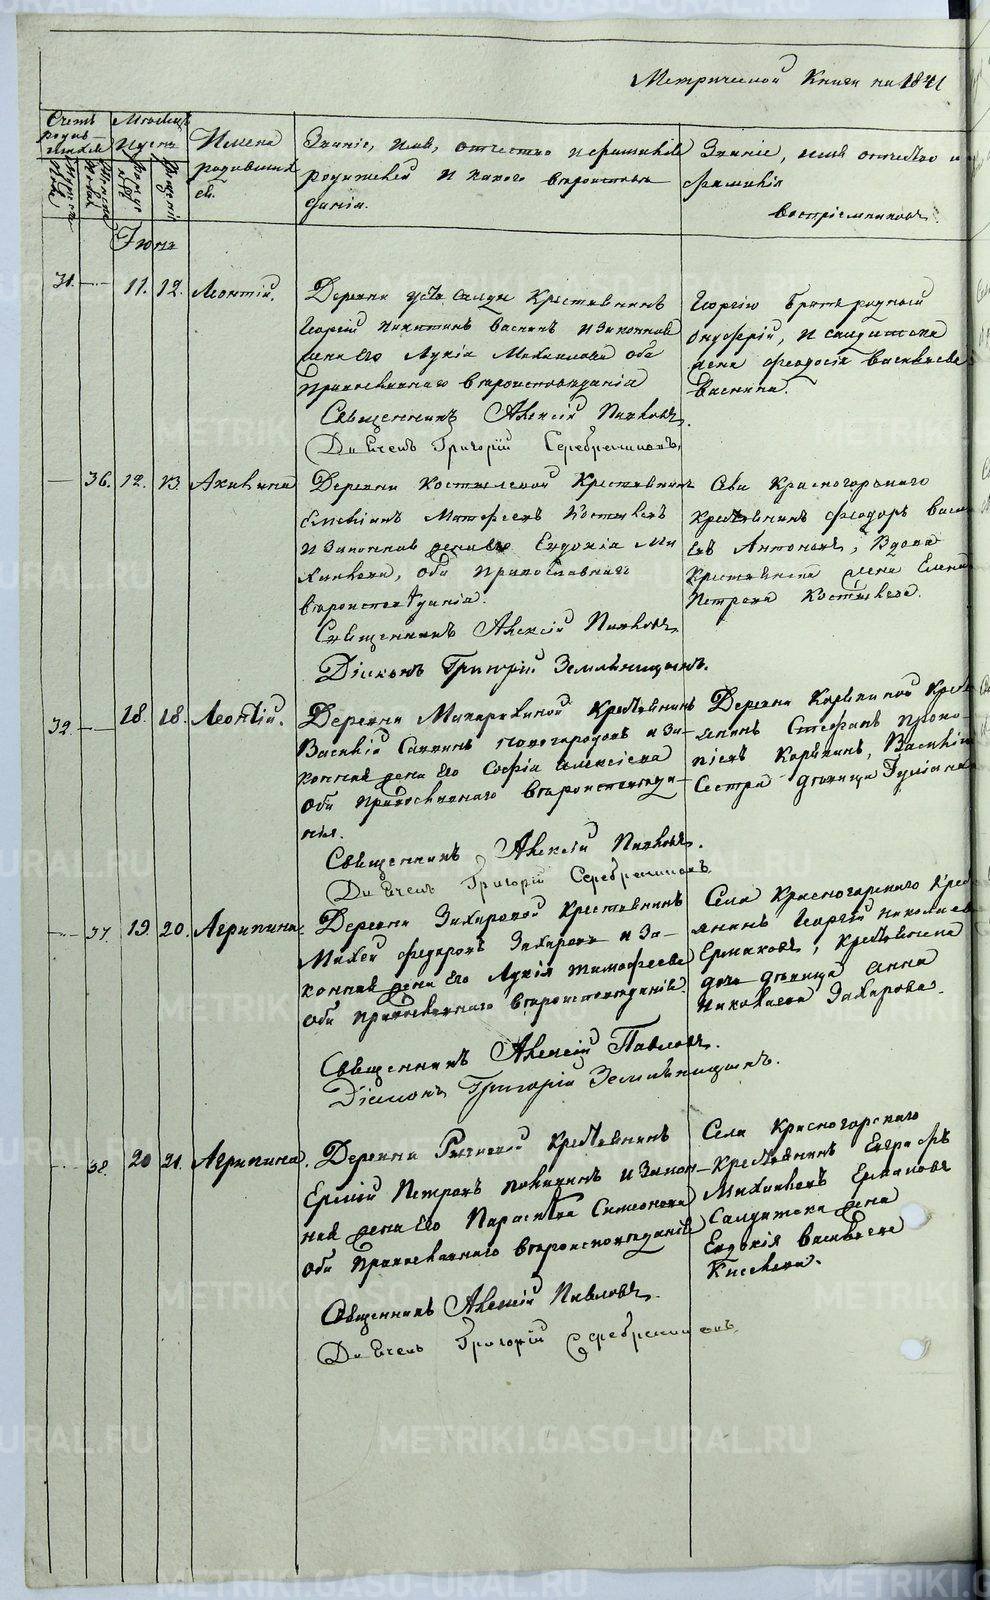 Метрической Книги на 1841
Счетъ родив-шихся
Мѣсяцъ и день
Имена родившихся.
Званіе, имя, отчество и фамилія родителей и какого вѣроисповѣданія.
Званіе, имя отчество и фамилія воспріемниковъ.
Іюнь
31. 11. 12. Леонтій.
Деревни Крестьянинъ
Георгій Никитинъ Васнинъ и Законная
жена его Лукія Михайлова оба
Православнаго вѣроисповѣданія
Священникъ Алексій Павловъ.
Григорій Серебрениковъ.
Георгію Братъ родный
и салдатска
жена Феодосія Васильева
Васнина.
36. 12. 13. Акилина
Деревни Костылевой Крестьянинъ
Матфеевъ Костылевъ
и Законная жена его Евдокія Ми
хайлова, Оба Православнаго
вѣроисповѣданія.
Священникъ Алексій Павловъ
Діаконъ Григорій Земляницынъ.
Села Красногорскаго
Крестьянинъ Феодоръ Васи
евъ Антоновъ, Вдова
Крестьянска жена Елена
Петрова Костылева.
32. 18. 18. Леонтій.
Деревни Крестьянинъ
Василій Саввинъ Новогородовъ и За-
конная жена его Софія Алексіева
Оба Православнаго Вѣроисповѣда-
нія.
Священникъ Алексій Павловъ.
Григорій Серебрениковъ
Деревни Корелиной Кресть
янинъ Стефанъ Проко-
піевъ Корелинъ, Василія
Сестра дѣвица Іуліанія
37. 19. 20. Агрипина.
Деревни Захаровой Крестьянинъ
Михей Федоровъ Захаровъ и За-
конная жена Его Лукія Тимофеева
Оба Православнаго Вѣроисповѣданія.
Священникъ Алексій Павловъ.
Діаконъ Григорій Земляницынъ.
Села Красногорскаго Крест
янинъ Георгій Николаевъ
Ермаковъ, Крестьянска
дочь дѣвица Анна
Николаева Захарова.
38. 20 21. Агрипина.
Деревни Крестьянинъ
Петровъ и Закон-
ная жена Его Параскева Симеонова
Оба Православнаго Вѣроисповѣданія
Священникъ Алексій Павловъ.
Григорій Серебрениковъ.
Села Красногорскаго
Крестьянинъ Евграфъ
Михайловъ Ермаковъ
Салдатска жена
Евдокія Васильева
Киселева.
METRIKI.GASO-URAL.RU